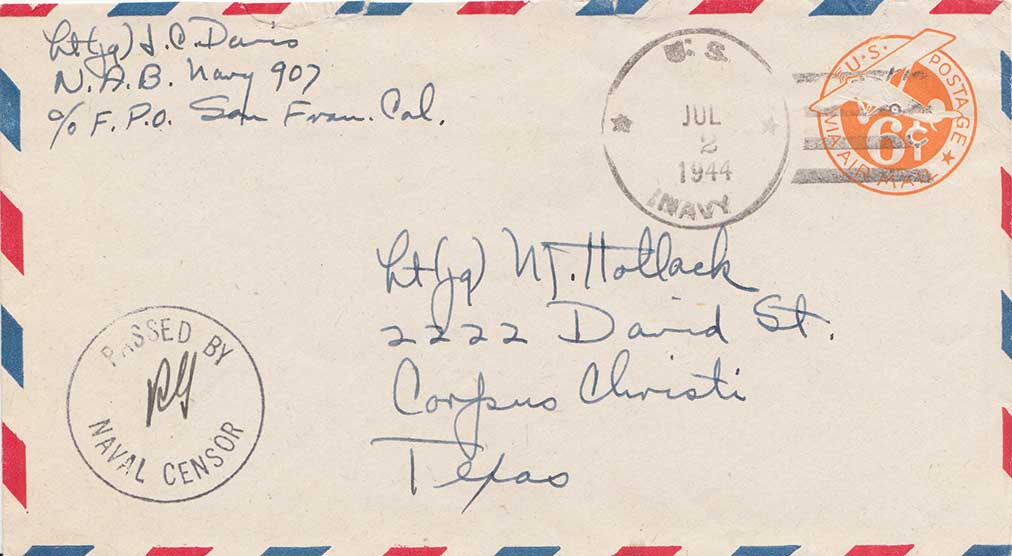 Lt(jg) J. C. Davis
N.A.B. Navy 907
c/o F.P.O. San Fran. Cal.
U.S.
JUL
2
1944
NAVY
U.S. POSTAGE
6¢
VIA AIR MAIL
Lt(jg) M. Hollack
2222 David St.
Corpus Christi
Texas
PASSED BY
NAVAL CENSOR